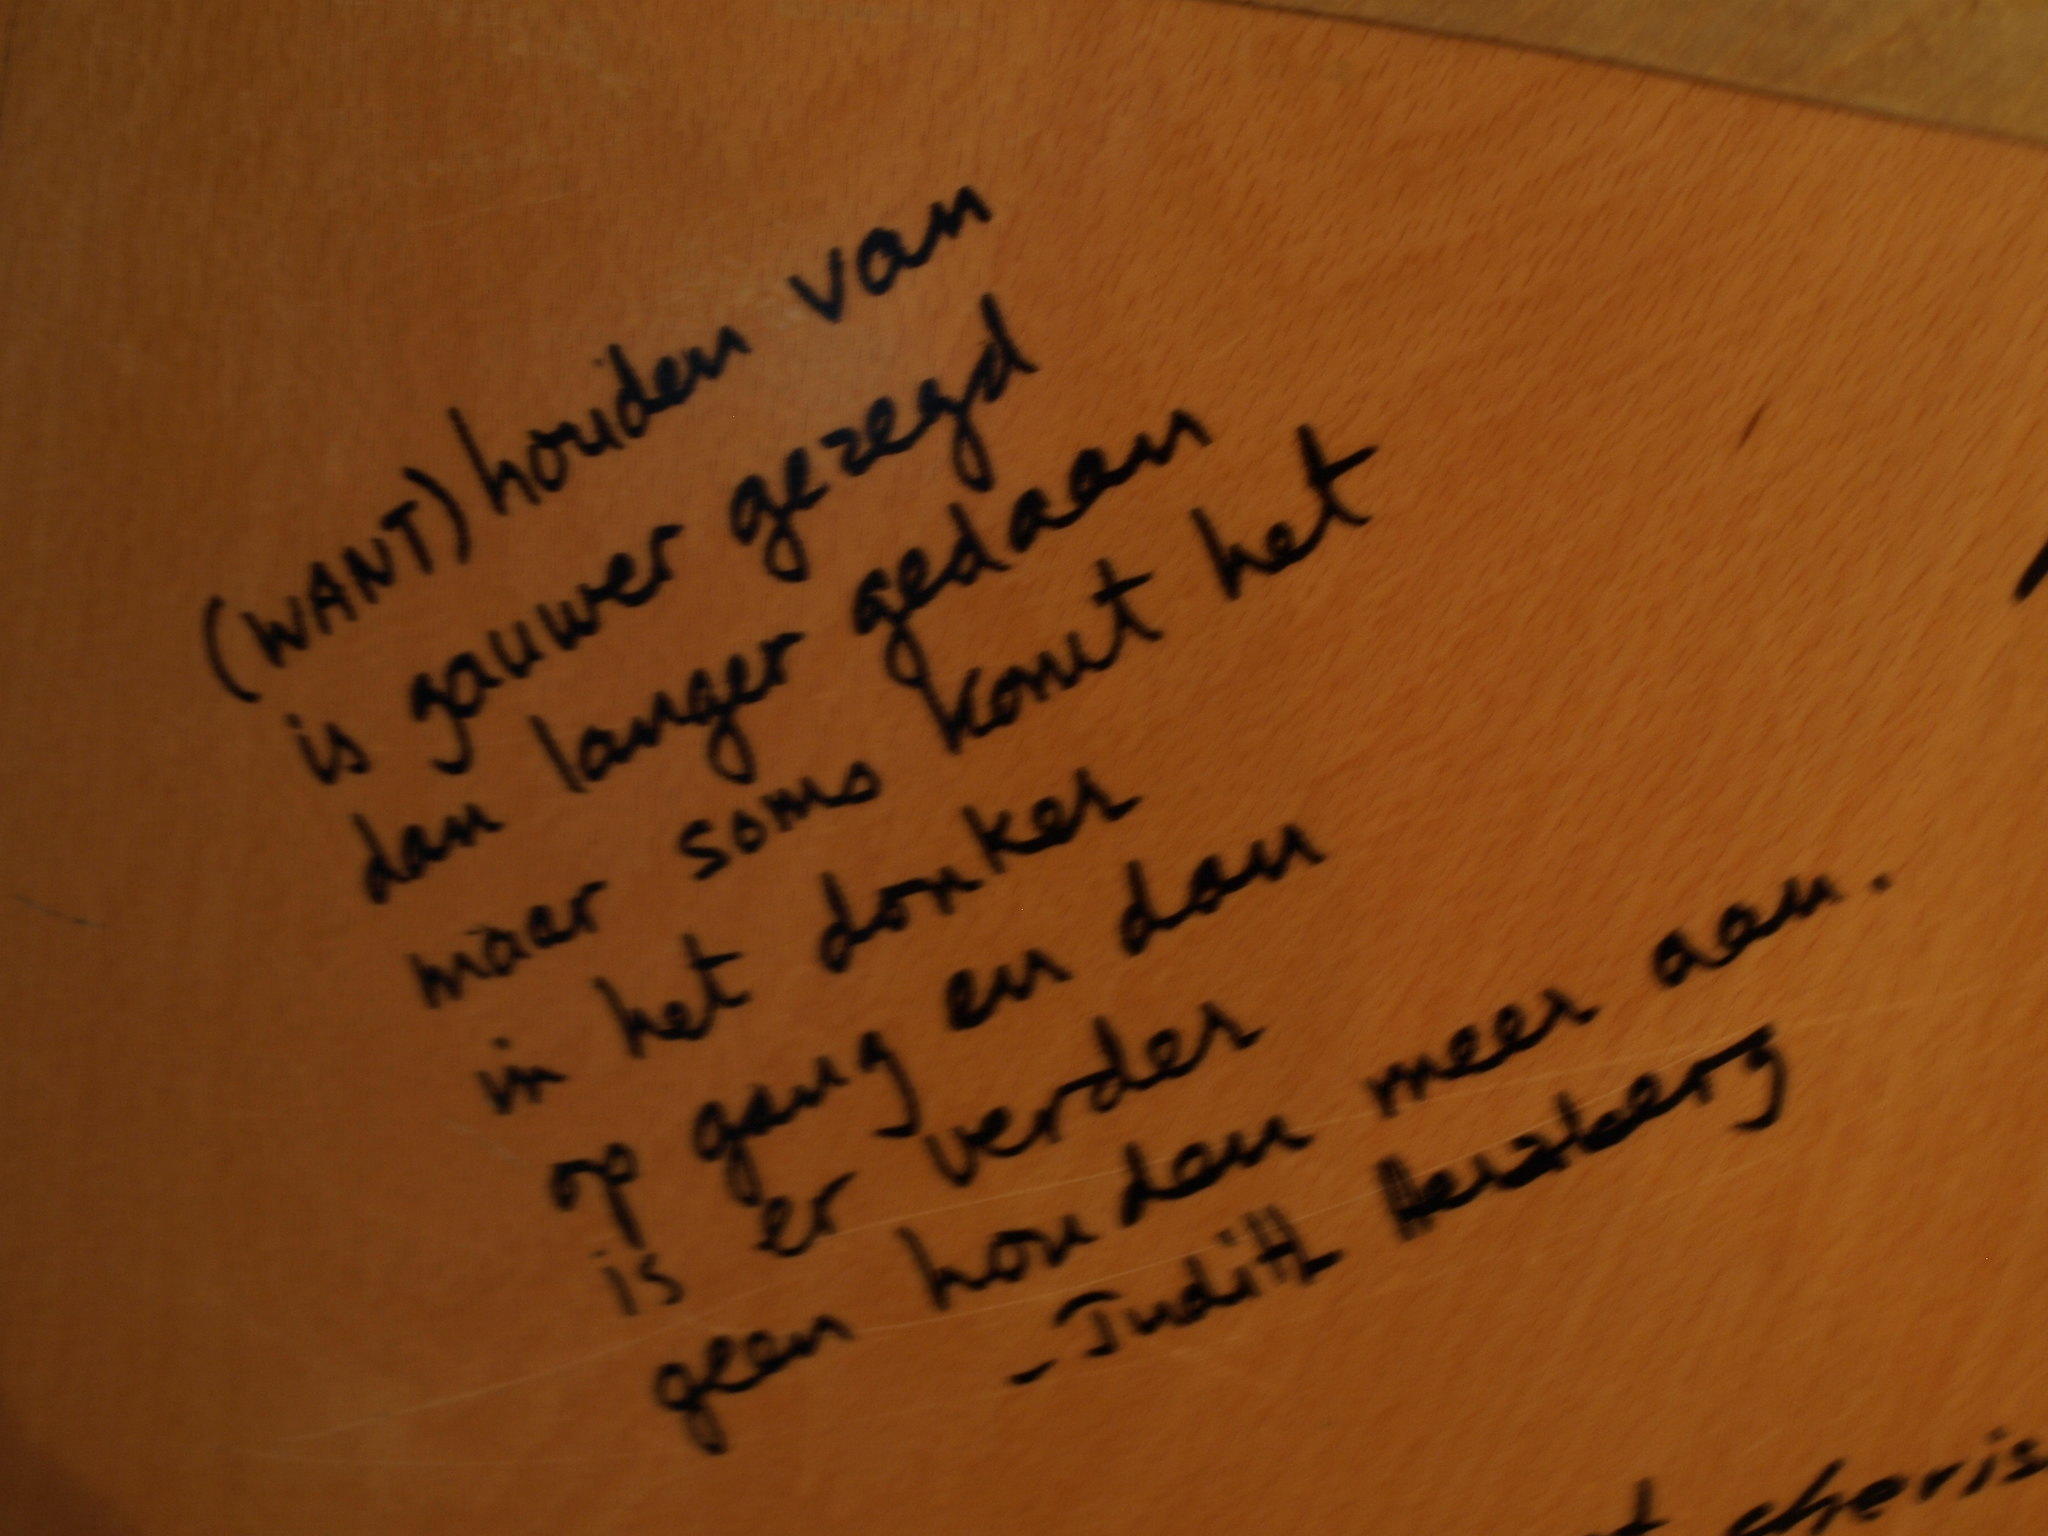 (WANT) houden van
is gauwer gezegd
dan langer gedaan
maar soms komt het
in het donker
op gang en dan
is er verder
geen houden meer aan.
- Judith Herzberg